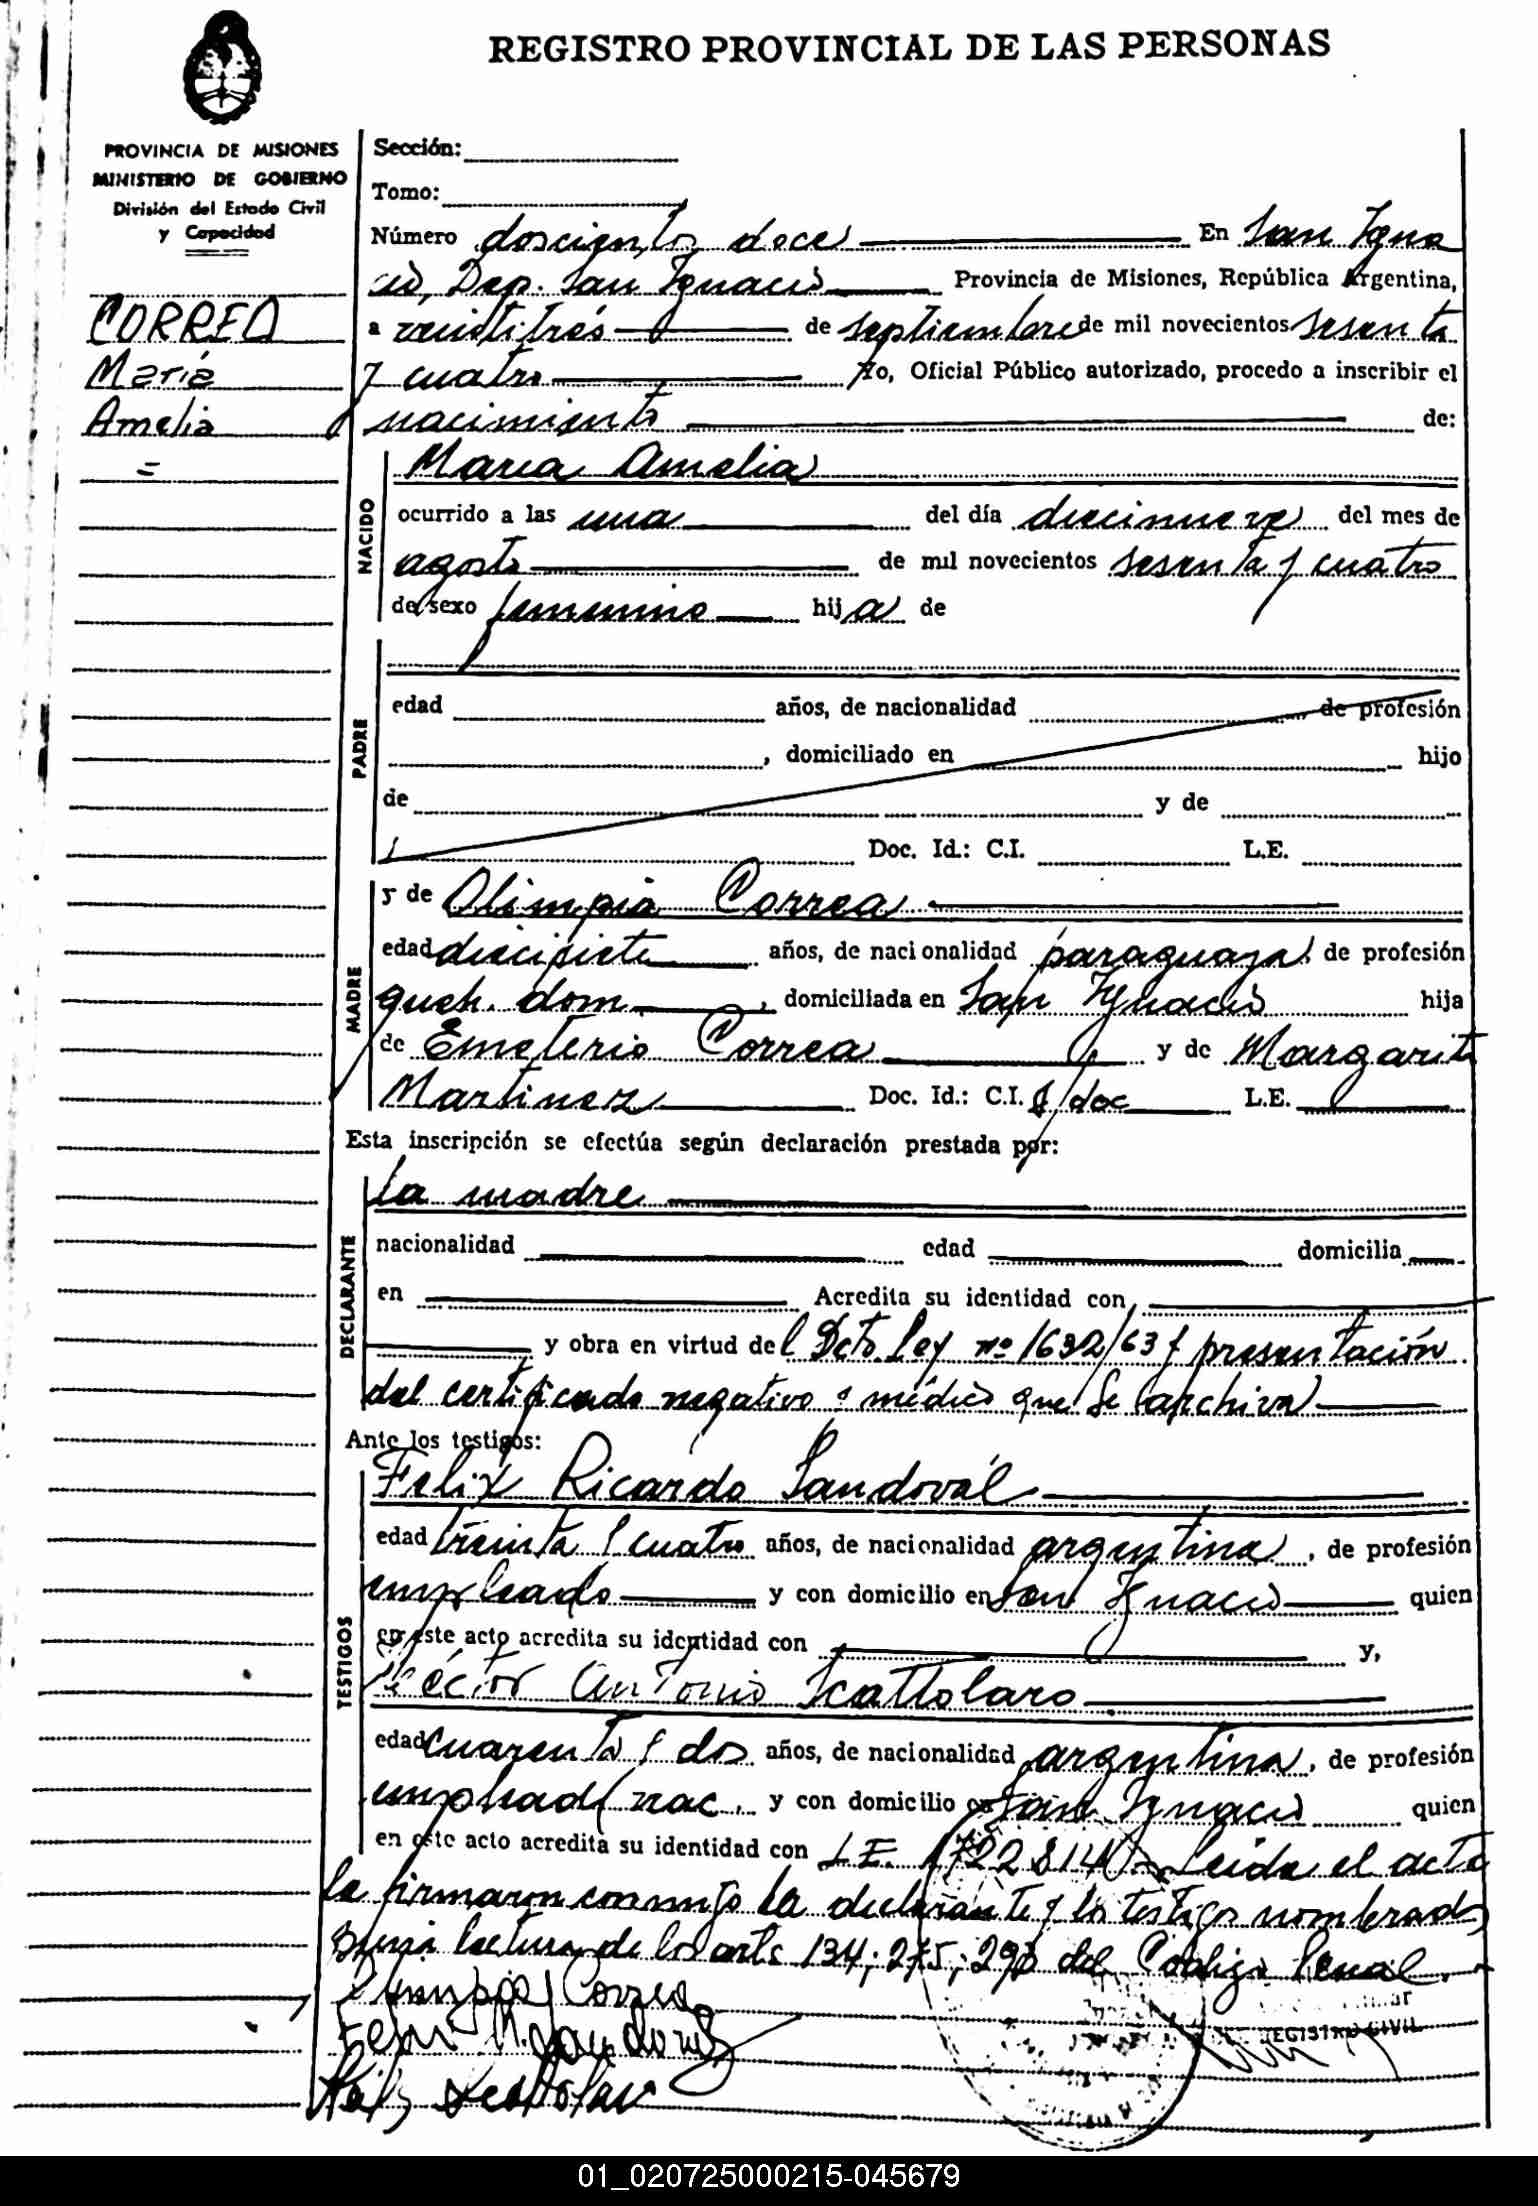 REGISTRO PROVINCIAL DE LAS PERSONAS
PROVINCIA DE MISIONES
MINISTERIO DE GOBIERNO
División del Estado Civil
y Capacidad
CORREA
María
Amelia
=
Sección:
Tomo:
Número doscientos doce En San Igna
cio, Dep. San Ignacio Provincia de Misiones, República Argentina,
a veintitrés de septiembre de mil novecientos sesenta
y cuatro Yo, Oficial Público autorizado, procedo a inscribir el
nacimiento de:
NACIDO
Maria Amelia
ocurrido a las una del día diecinueve del mes de
agosto de mil novecientos sesenta y cuatro
de sexo femenino hija de
PADRE
edad años, de nacionalidad de profesión
, domiciliado en hijo
de y de
Doc. Id.: C.I. L.E.
MADRE
y de Olimpia Correa
edad diecisiete años, de nacionalidad paraguaya, de profesión
queh. dom , domiciliada en San Ignacio hija
de Emeterio Correa y de Margarita
Martinez Doc. Id.: C.I. s/doc L.E.
Esta inscripción se efectúa según declaración prestada por:
DECLARANTE
la madre
nacionalidad edad domicilia
en Acredita su identidad con
y obra en virtud del Dcto. Ley nº 1632/63 y presentación
del certificado negativo y médico que se archiva
Ante los testigos:
TESTIGOS
Felix Ricardo Sandoval
edad treinta y cuatro años, de nacionalidad argentina, de profesión
empleado y con domicilio en San Ignacio quien
en este acto acredita su identidad con y,
Héctor Antonio Scattolaro
edad cuarenta y dos años, de nacionalidad argentina, de profesión
empleado nac. y con domicilio en San Ignacio quien
en este acto acredita su identidad con L.E. 1722814 Leida el acta
la firmaron conmigo la declarante y los testigos nombrados
previa lectura de los arts 134; 275; 293 del Código Penal.
Olimpia Correa
Felix R. Sandoval
Scattolaro
REGISTRO CIVIL
01_020725000215-045679